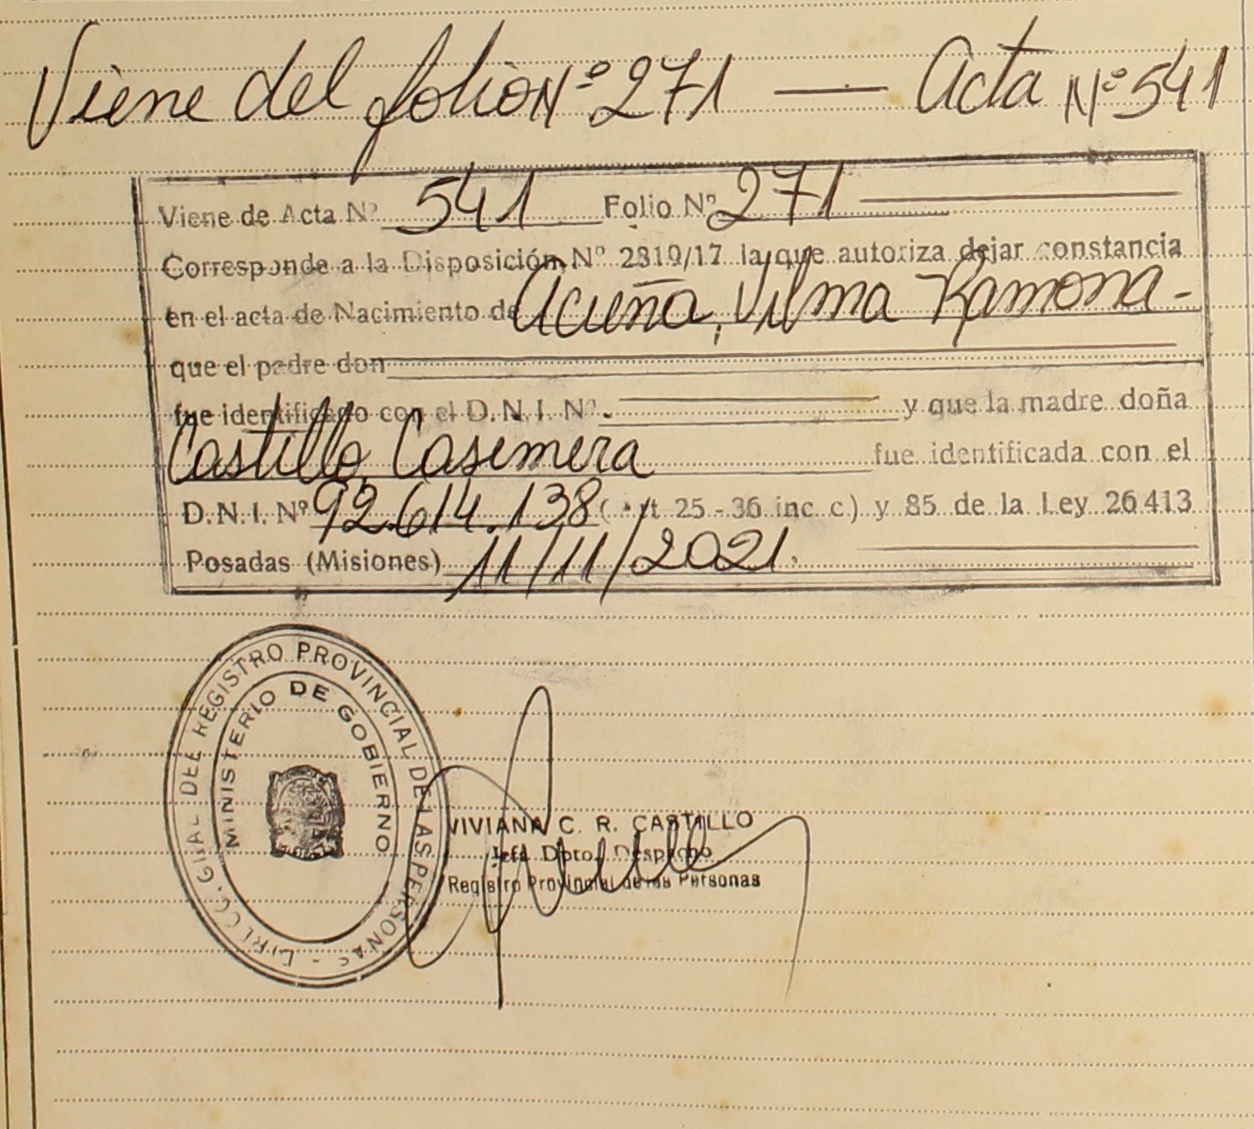 Viene del folio Nº 271 — Acta Nº 541
Viene de Acta Nº 541 Folio Nº 271
Corresponde a la Disposición Nº 2819/17 la que autoriza dejar constancia
en el acta de Nacimiento de Acuña, Vilma Ramona-
que el padre don
fue identificado con el D.N.I. Nº. y que la madre doña
Castillo, Casimera fue identificada con el
D.N.I. Nº 92.614.138 (Art 25-36 inc c.) y 85 de la Ley 26413
Posadas (Misiones) 11/11/2021.
DIRECC. GRAL DEL REGISTRO PROVINCIAL DE LAS PERSONAS -
MINISTERIO DE GOBIERNO
VIVIANA C. R. CASTILLO
Jefa Dpto. Despacho
Registro Provincial de las Personas